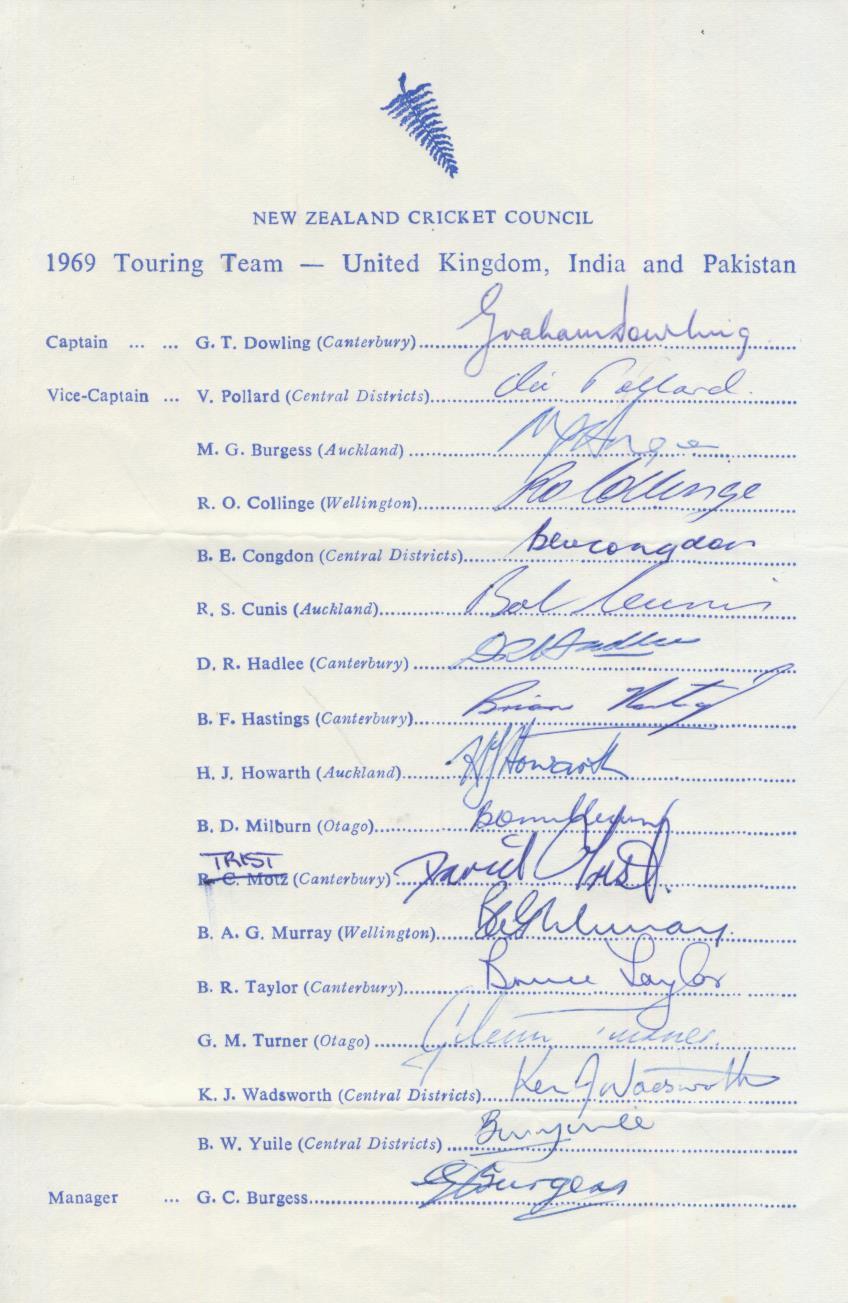 NEW ZEALAND CRICKET COUNCIL
1969 Touring Team — United Kingdom, India and Pakistan
Captain ... ... G. T. Dowling (Canterbury)........ Graham Dowling
Vice-Captain ... V. Pollard (Central Districts)........ Vic Pollard
M. G. Burgess (Auckland) ........ M G Burgess
R. O. Collinge (Wellington)........ R O Collinge
B. E. Congdon (Central Districts)........ Bev Congdon
R. S. Cunis (Auckland)........ Bob Cunis
D. R. Hadlee (Canterbury) ........ D R Hadlee
B. F. Hastings (Canterbury)........ Brian Hastings
H. J. Howarth (Auckland)........ H J Howarth
B. D. Milburn (Otago)........
TRIST
R. C. Motz (Canterbury) ........ David Trist.
B. A. G. Murray (Wellington)........ B A G Murray.
B. R. Taylor (Canterbury)........ Bruce Taylor
G. M. Turner (Otago) ........ Glenn Turner.
K. J. Wadsworth (Central Districts)........ Ken J Wadsworth
B. W. Yuile (Central Districts) ........
Manager ... G. C. Burgess........ G C Burgess